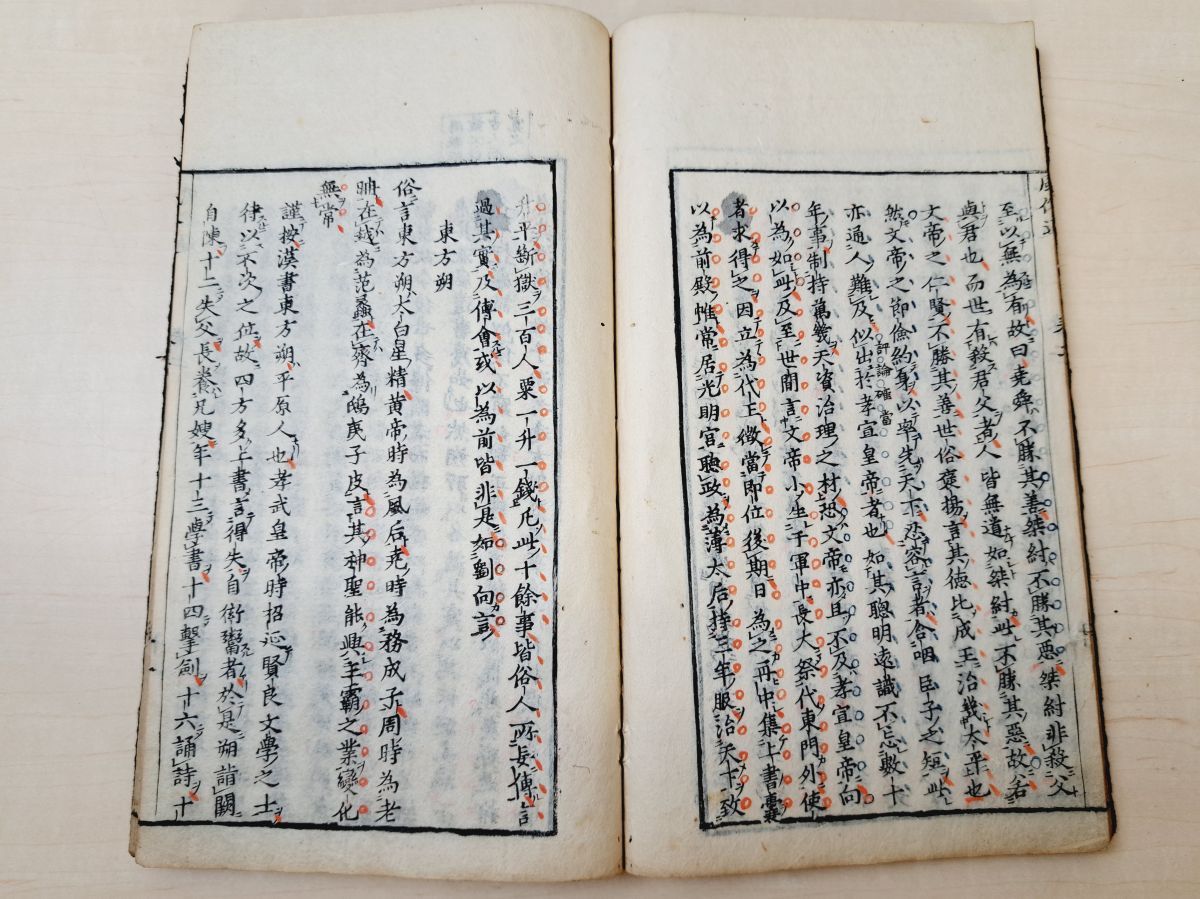 至以無為有故曰堯舜不勝其善桀紂不勝其惡桀紂非殺父
與君也而世有殺君父者人皆無道如桀紂此不勝其惡故若
文帝之仁賢不勝其善世俗褒揚言其德比成王治幾太平也
然文帝之節儉約身以率先天下忍容言者含咽臣子之短此
亦通人難及似出於孝宣皇帝者也如其聰明遠識不忘數十
評論確當
年事制持萬幾天資治理之材恐文帝亦且不及孝宣皇帝向
以為如此及至世間言文帝小生于軍中長大祭代東門外使
者求得之因立為代王徵當即位後期日為之再中集上書囊
以為前殿帷常居光明宮聽政為薄太后持三年服治天下致
升平斷獄三百人粟一升一錢凡此十餘事皆俗人所妄傳言
過其實及傅會或以為前皆非是如劉向言
東方朔
俗言東方朔太白星精黃帝時為風后堯時為務成子周時為老
聃在越為范蠡在齊為鴟夷子皮言其神聖能興王霸之業變化
無常
謹按漢書東方朔平原人也孝武皇帝時招延賢良文學之士
待以不次之位故四方多上書言得失自衒鬻者於是朔詣闕
自陳十二失父長養兄嫂年十三學書十四擊劍十六誦詩十